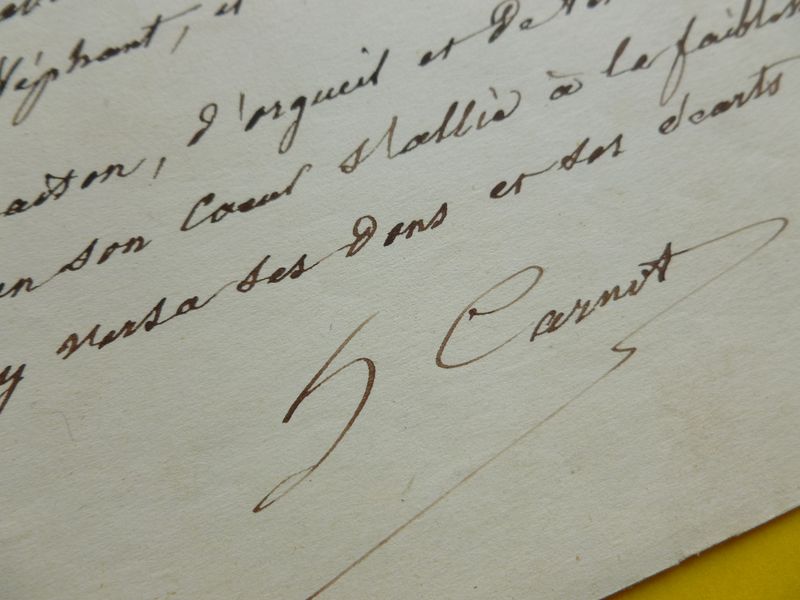 léphant, et
aison, d'orgueil et de
en son coeur s'allie à la faibles
y versa ses dons et ses écarts
h Carnot